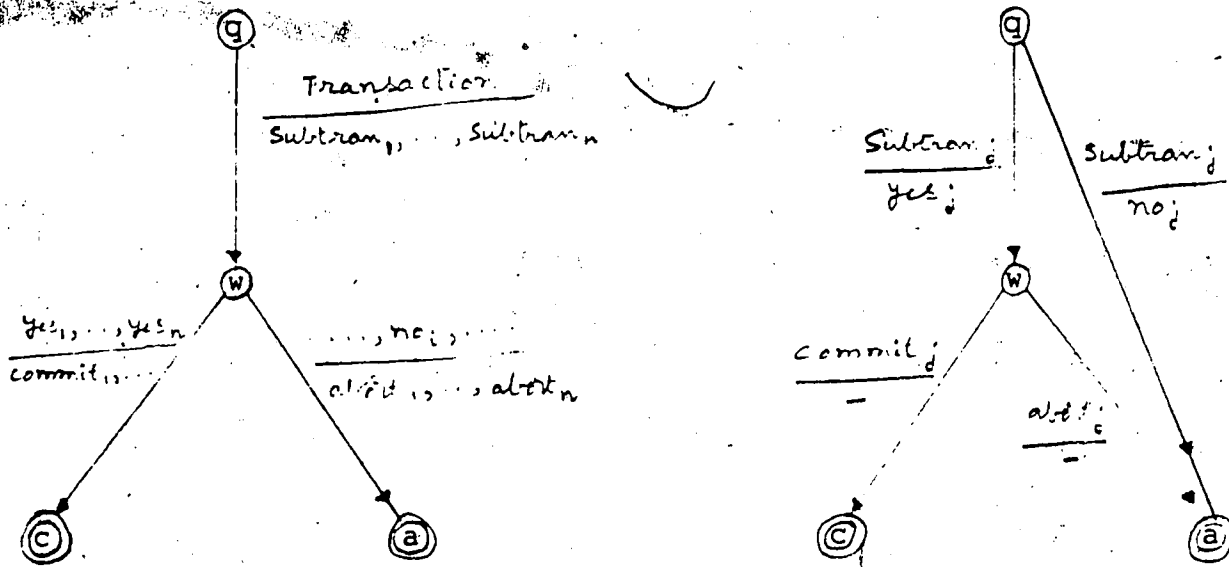 q
Transaction
Subtran₁, ..., Subtranₙ
w
yes₁, .., yesₙ
commit₁, ...
..., noᵢ, ....
abort₁, .., abortₙ
c
a
q
Subtranⱼ
yesⱼ
Subtranⱼ
noⱼ
w
commitⱼ
–
abortⱼ
–
c
a